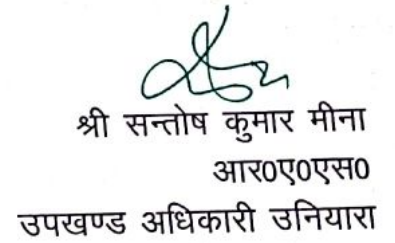 श्री सन्तोष कुमार मीना
आर0ए0एस0
उपखण्ड अधिकारी उनियारा